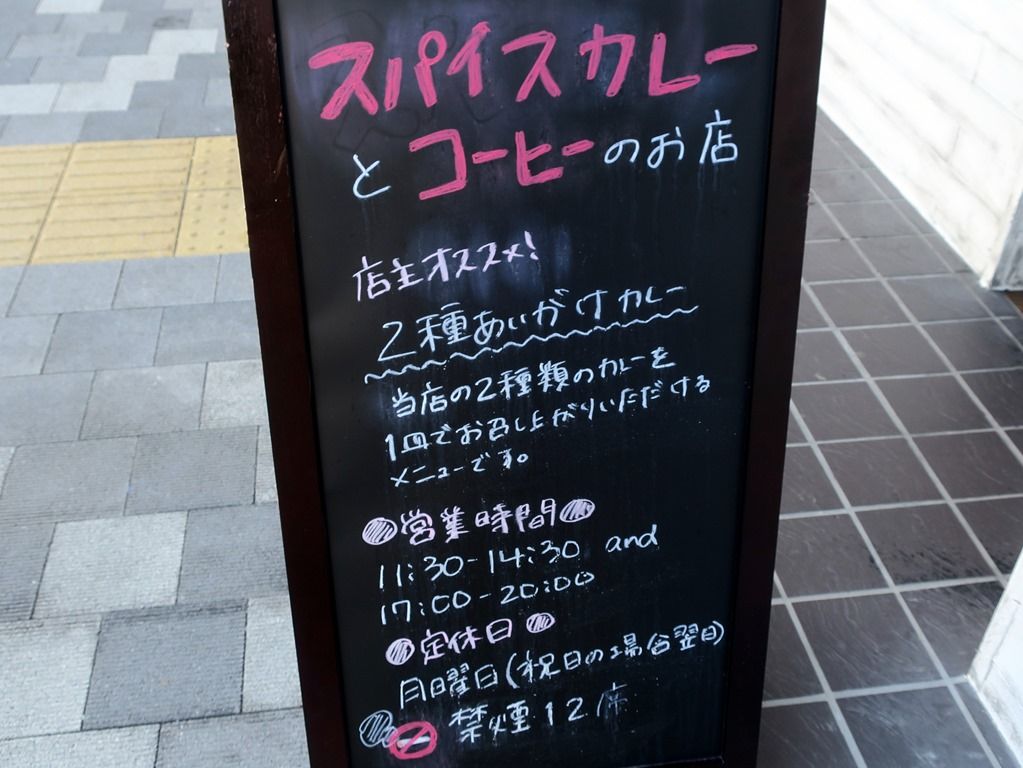 スパイスカレー
とコーヒーのお店
店主オススメ!
2種あいがけカレー
当店の2種類のカレーを
1皿でお召し上がりいただける
メニューです。
●営業時間●
11:30-14:30 and
17:00-20:00
●定休日●
月曜日(祝日の場合翌日)
禁煙12席